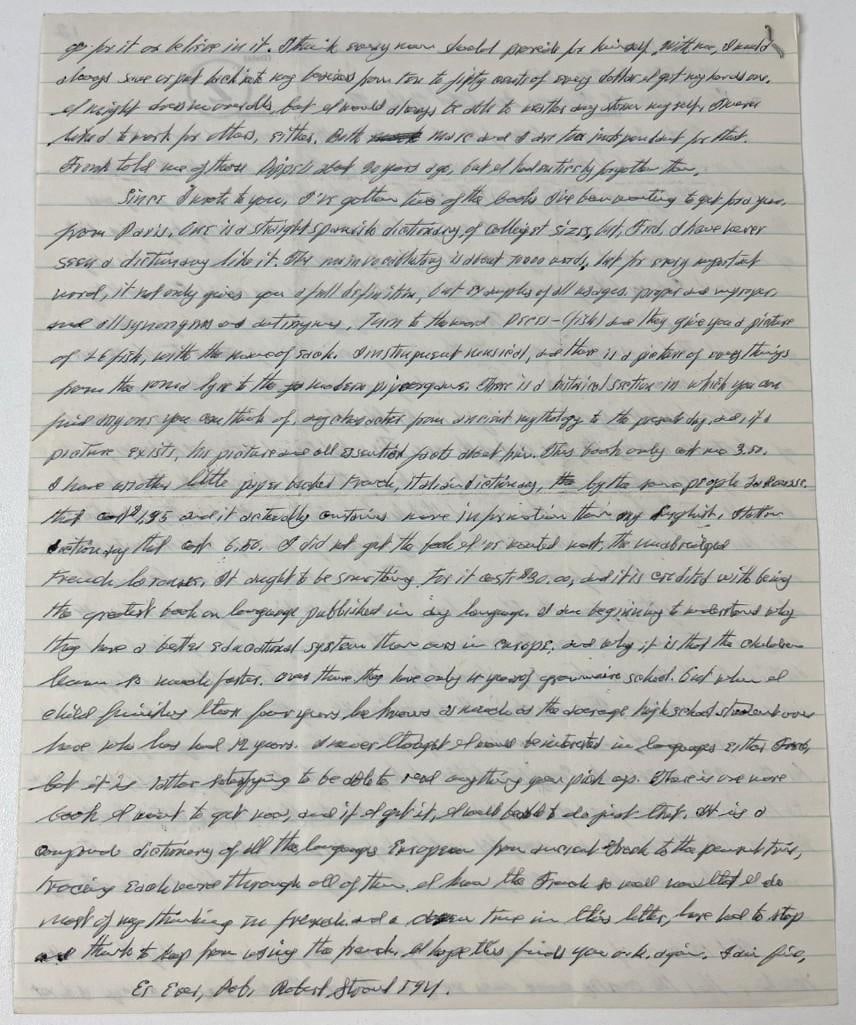 go for it or believe in it. I think every man should provide for himself, with me, I would
always save or put back into my business from ten to fifty cents of every dollar I got my hands on.
I might dress in overalls, but I would always be able to weather any storm myself. I never
liked to work for others, either. Both Marc and I are too independent for that.
Frank told me of those about 20 years ago, but I had entirely forgotten them.
Since I wrote to you, I've gotten two of the books I've been wanting to get for a year,
from Paris. One is a straight spanish dictionary of colleget size, but, Fred, I have never
seen a dictionary like it. The main vocabulary is about 70000 words, but for every important
word, it not only gives you a full definition, but examples of all usages. proper and improper,
and all synonyms and antonyms. Turn to the word (fish) and they give you a picture
of 46 fish, with the name of each. Instrument musical, and there is a picture of everything
from the lyre to the modern pipeorgans. There is a historical section in which you can
find anyone you can think of, any character from ancient mythology to the present day, and, if a
picture exists, his picture and all essential facts about him. This book only cost me 3.50.
I have another little paper backed French, Italian dictionary, by the same people Larousse.
that cost $1.95 and it actually contains more information than my English, Italian
dictionary that cost 6.50. I did not get the book I've wanted most, the unabridged
French Larousse. It ought to be something for it costs $30.00, and it is credited with being
the greatest book on language published in any language. I am beginning to understand why
they have a better educational system than ours in europe, and why it is that the children
learn so much faster. over there they have only 4 years of grammaire school. but when a
child finishes those four years, he knows as much as the average high school student over
here who has had 12 years. I never thought I would be interested in languages either Fred,
but it is rather satisfying to be able to read anything you pick up. There is one more
book I want to get now, and if I get it, I will be able to do just that. It is a
compound dictionary of all the languages European from ancient Greek to the present time,
tracing each word through all of them. I know the French so well now that I do
most of my thinking in french and a dozen time in this letter, have had to stop
and think to keep from using the french. I hope this finds you o.k. again. I am fine,
As Ever, Bob, Robert Stroud 594.